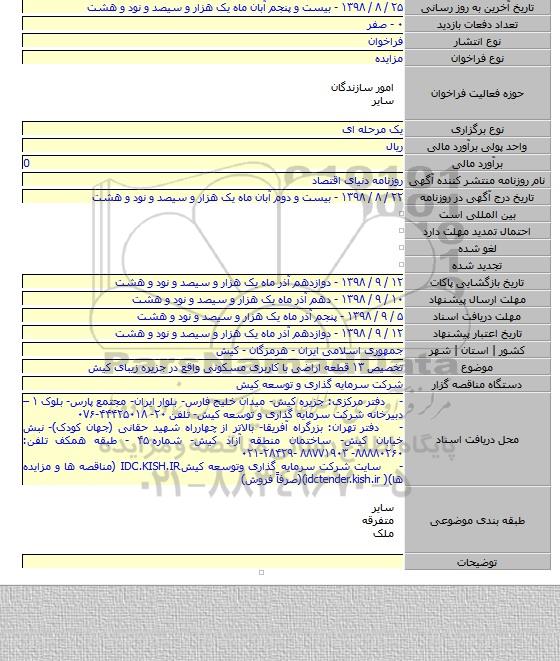 تاریخ آخرین به روز رسانی ۲۵ / ۸ / ۱۳۹۸ - بیست و پنجم آبان ماه یک هزار و سیصد و نود و هشت
تعداد دفعات بازدید ۰ - صفر
نوع انتشار فراخوان
نوع فراخوان مزایده
حوزه فعالیت فراخوان امور سازندگان
سایر
نوع برگزاری یک مرحله ای
واحد پولی برآورد مالی ریال
برآورد مالی 0
نام روزنامه منتشر کننده آگهی روزنامه دنیای اقتصاد
تاریخ درج آگهی در روزنامه ۲۲ / ۸ / ۱۳۹۸ - بیست و دوم آبان ماه یک هزار و سیصد و نود و هشت
بین المللی است
احتمال تمدید مهلت دارد
لغو شده
تجدید شده
تاریخ بازگشایی پاکات ۱۲ / ۹ / ۱۳۹۸ - دوازدهم آذر ماه یک هزار و سیصد و نود و هشت
مهلت ارسال پیشنهاد ۱۰ / ۹ / ۱۳۹۸ - دهم آذر ماه یک هزار و سیصد و نود و هشت
مهلت دریافت اسناد ۵ / ۹ / ۱۳۹۸ - پنجم آذر ماه یک هزار و سیصد و نود و هشت
تاریخ اعتبار پیشنهاد ۱۲ / ۹ / ۱۳۹۸ - دوازدهم آذر ماه یک هزار و سیصد و نود و هشت
کشور | استان | شهر جمهوری اسلامی ایران - هرمزگان - کیش
موضوع تخصیص ۱۳ قطعه اراضی با کاربری مسکونی واقع در جزیره زیبای کیش
دستگاه مناقصه گزار شرکت سرمایه گذاری و توسعه کیش
محل دریافت اسناد
- دفتر مرکزی: جزیره کیش- میدان خلیج فارس- بلوار ایران- مجتمع پارس- بلوک ۱ –
دبیرخانه شرکت سرمایه گذاری و توسعه کیش- تلفن ۲۰-۰۷۶-۴۴۴۲۵۰۱۸
- دفتر تهران: بزرگراه آفریقا- بالاتر از چهارراه شهید حقانی (جهان کودک)- نبش
خیابان کیش- ساختمان منطقه آزاد کیش- شماره ۴۵ - طبقه همکف تلفن:
۸۸۸۸۰۲۶۰- ۸۸۷۷۱۹۰۳ -۰۲۱-۲۸۴۲۹
- سایت شرکت سرمایه گذاری وتوسعه کیشIDC.KISH.IR (مناقصه ها و مزایده
ها)(idctender.kish.ir )(صرفاً فروش)
طبقه بندی موضوعی سایر
متفرقه
ملک
توضیحات
ParsNamadData
۰۲۱-۸۸۳۴۹۶۷۰-۵